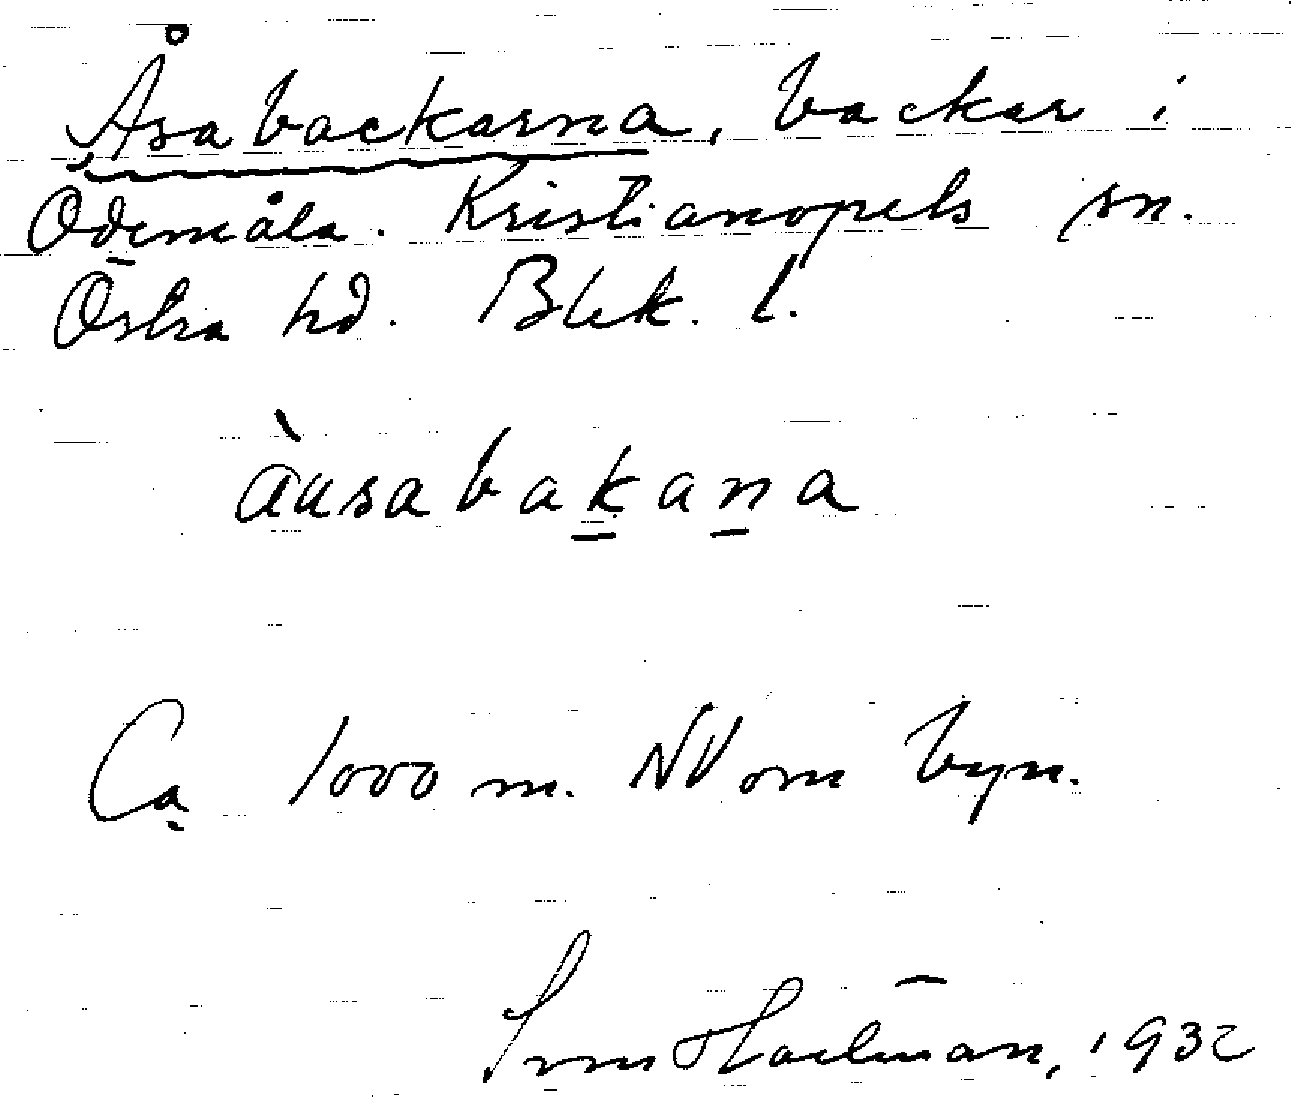 Åsabackarna, backar i
Ödemåla. Kristianopels sn.
Östra hd. Blek. l.
àusabakana
Ca 1000 m. NV om byn.
Sven Hallman, 1932